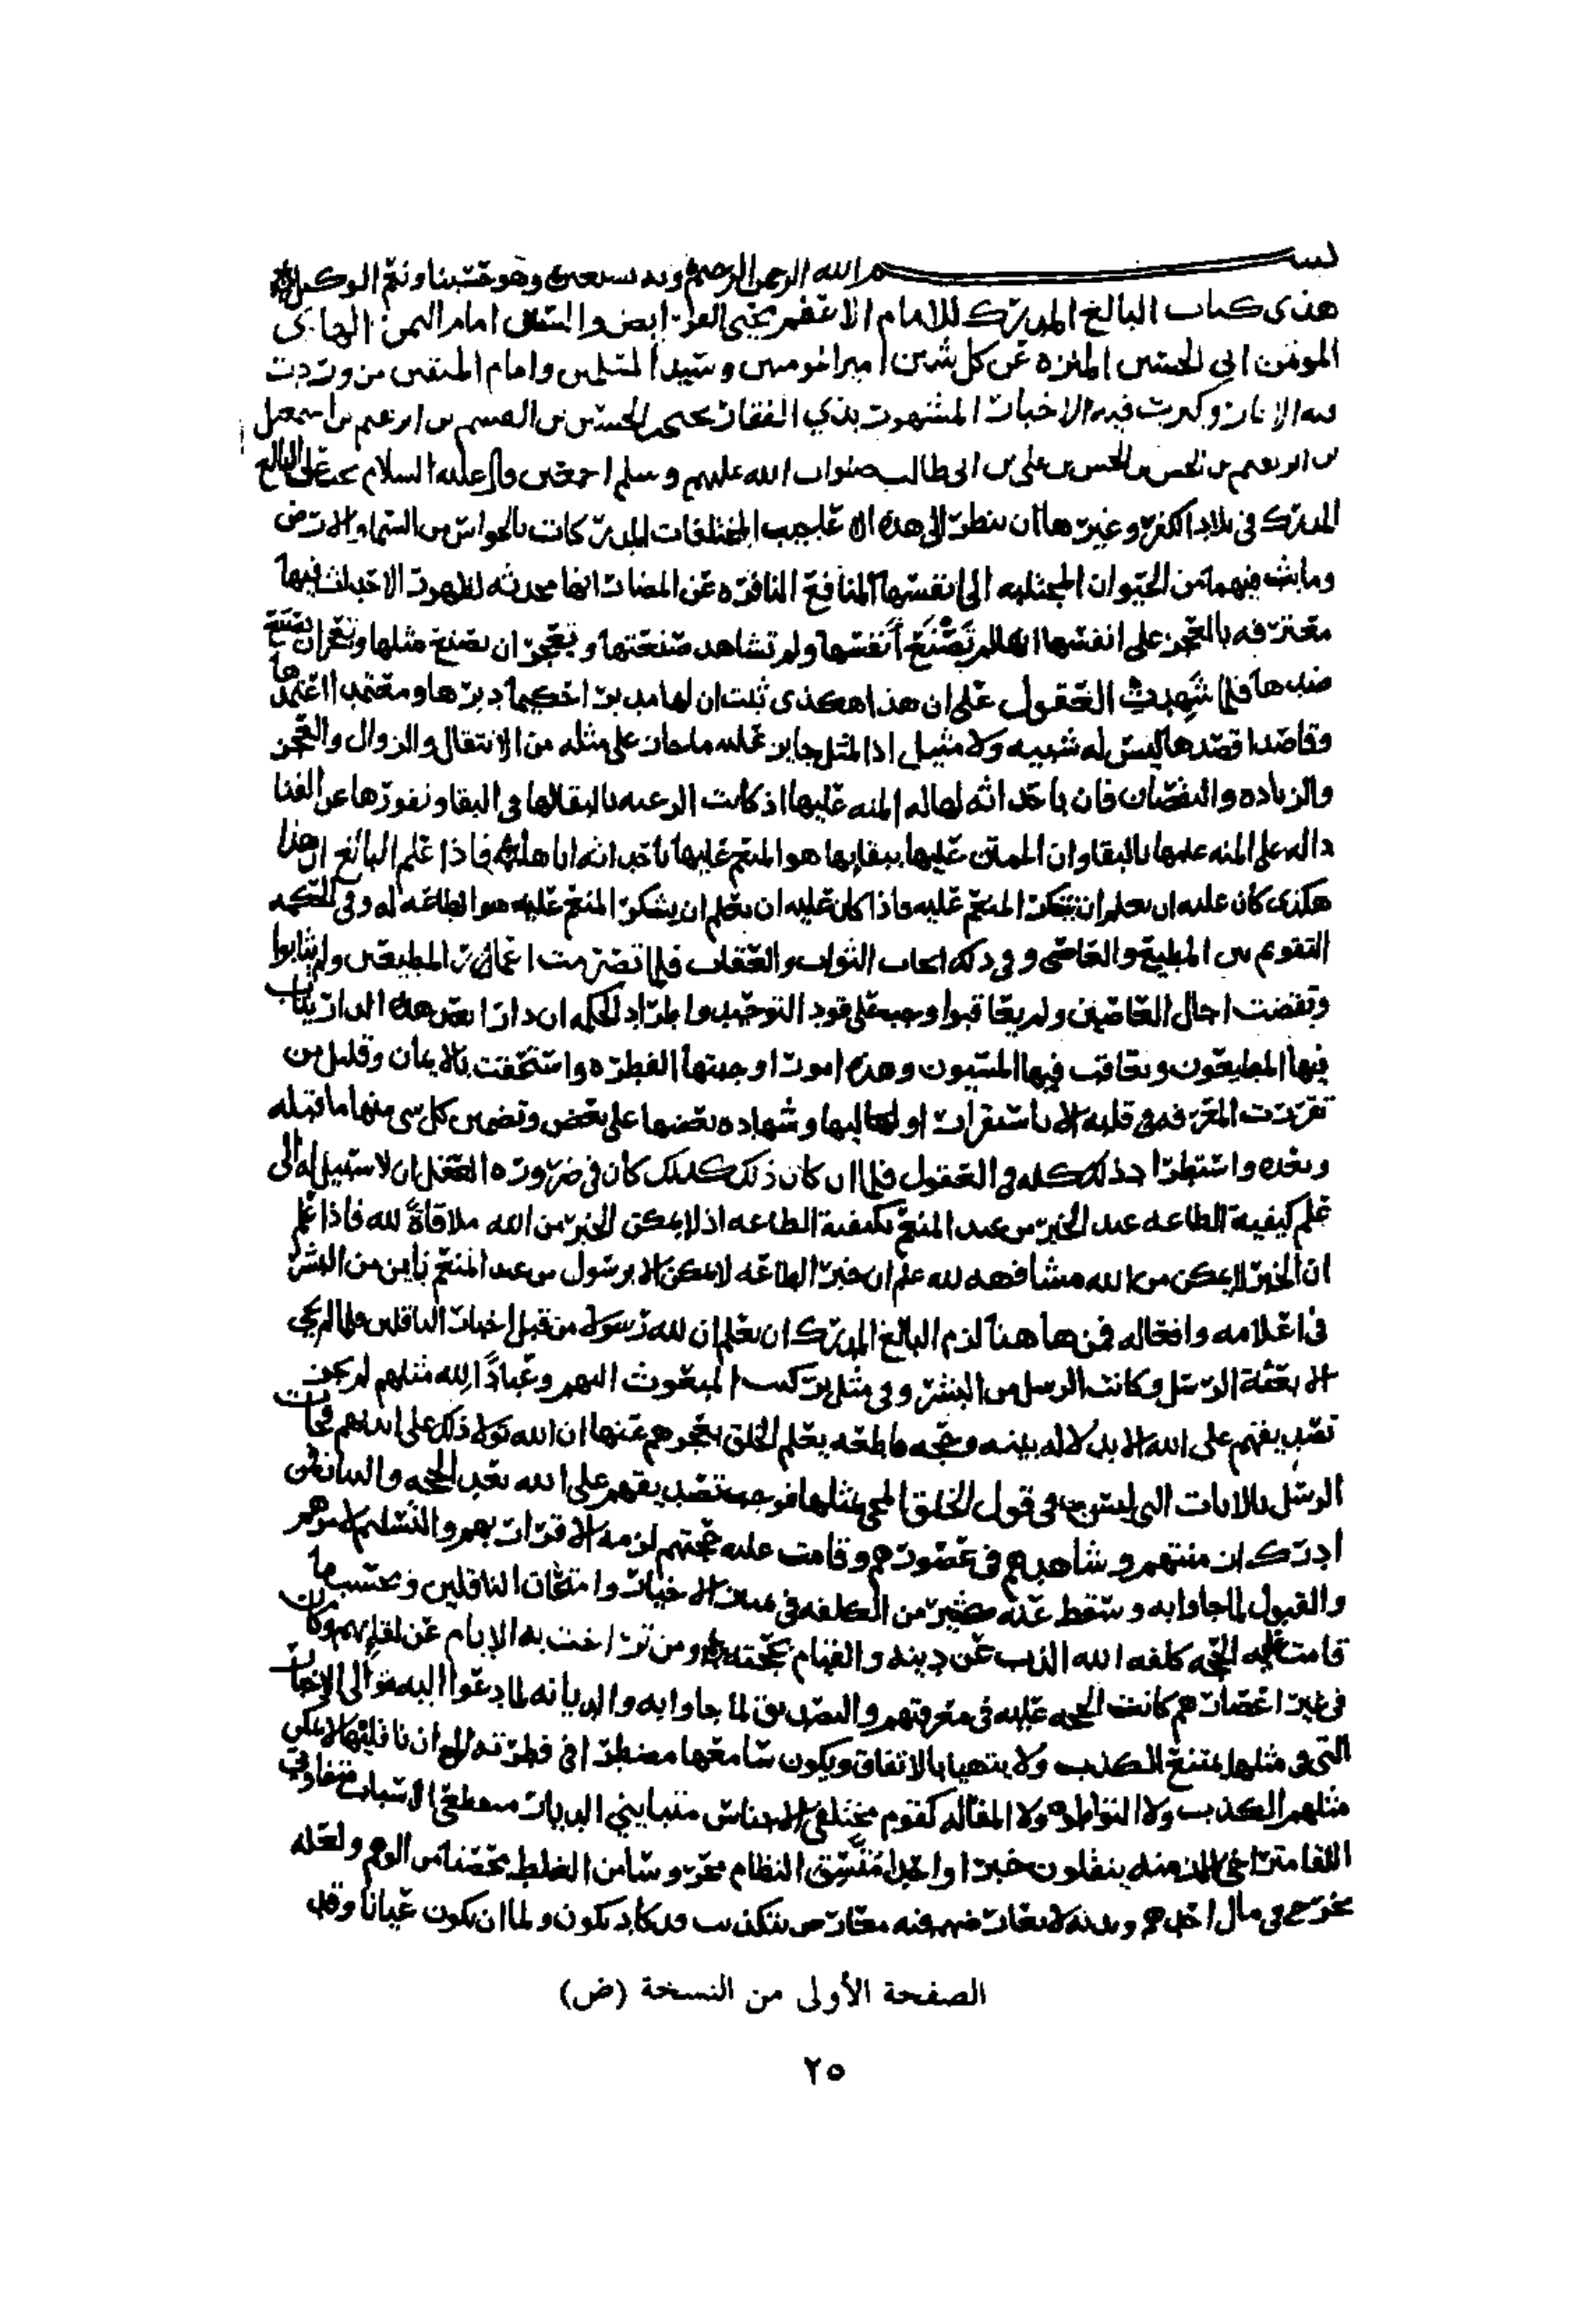 بسم الله الرحمن الرحيم وبه نستعين وهو حسبنا ونعم الوكيل
هذى كتاب البالغ المدرك للامام الاعظم محيي الفرايض والسنن امام اليمن الهادى
الموتمن ابي الحسين المنزه عن كل شين امير المومنين وسيد المسلمين وامام المتقين من وردت
فيه الاثار وكثرت فيه الاخبار المشهور بذي الفقار يحيى بن الحسين بن القسم بن ابرهيم بن اسمعيل
بن ابرهيم بن الحسن بن الحسن بن على بن ابى طالب صلوات الله عليهم وسلم اجمعين قال عليه السلام يجب على البالغ
المدرك في بلاد الكفر وغيرها ان ينظر الى هذه الاعاجيب المختلفات المدركات بالحواس من السما والارض
وما بث فيهما من الحيوان المجتلبه الى انفسها المنافع النافره عن المضار انها محدثه لظهور الاحداث فيها
معترفه بالعجز على انفسها انها لم تصنع انفسها ولم تشاهد صنعتها وتعجز ان تصنع مثلها وتعجز ان تصنع
ضدها فلما شهدت العقول على ان هذا هكذى ثبت ان لها مدبرا حكيما دبرها ومعتمدا اعتمدها
وقاصدا قصدها ليس له شبيه ولا مثيل اذ المثل جايز عليه ما جاز على مثله من الانتقال والزوال والعجز
والزياده والنقصان فان باحداثه لها له المنه عليها اذ كانت الرغبه بالبقا لها في البقا ونفورها عن الفنا
داله على المنه عليها بالبقا وان الممتن عليها ببقايها هو المنعم عليها باحداثه اياها فاذا علم البالغ ان هذا
هكذى كان عليه ان يعلم ان يشكر المنعم عليه فاذا كان عليه ان يعلم ان يشكر المنعم عليه هو الطاعه له وفي الحكمه
التقويم بين المطيع والعاصى وفي ذلك ايجاب الثواب والعقاب فلما تصرمت اعمار المطيعين ولم يثابوا
وتقضت اجال العاصين ولم يعاقبوا وجب على قود التوحيد واطراد الحكمه ان دارا بعد هذه الدار يثاب
فيها المطيعون ويعاقب فيها المسيون وهذه امور اوجبتها الفطره واستحقت بالايمان وقليل من
تقررت المعرفه في قلبه الا باستقرار اولها ليها وشهاده بعضها على بعض وتضمين كل شى منها ما قبله
وبعده واستطراد ذلك كله في العقول فلما ان كان ذلك كذلك كان في ضروره العقل ان لا سبيل له الى
علم كيفية الطاعه عند الخبر من عند المنعم بكيفية الطاعه اذ لا يمكن الخبر من الله ملاقاة لله فاذا علم
ان الخبر لا يمكن من الله مشافهه لله علم ان خبر الطاعه لا يمكن الا برسول من عند المنعم باين من البشر
في اعلامه وافعاله فمن هاهنا لزم البالغ المدرك ان يعلم ان لله رسولا من قبل اخبار الناقلين فلما لم يجي
الا بعثة الرسل وكانت الرسل من البشر وفي مثل تركيب المبعوث اليهم وعبادا لله مثلهم لم يجز
تصديقهم على الله الا بدلاله بينه وحجه قاطعه يعلم الخلق بعجزهم عنها ان الله تولا ذلك على ايديهم فجات
الرسل بالايات التى ليس في قول الخلق المجي بمثلها فوجب تصديقهم على الله بعد الحجه والبيان فمن
ادرك ازمنتهم وشاهدهم في عصورهم وقامت عليه حجتهم لزمه الاقرار بهم والتسليم لامرهم
والقبول لما جاوا به وسقط عنه كثير من الكلفه في الاخبار وامتحان الناقلين فبحسب ما
قامت عليه الحجه كلفه الله الذب عن دينه والقيام بحجته ومن تراخت به الايام عن لقايهم وكان
في غير اعصارهم كانت الحجه عليه في معرفتهم والتصديق لما جاوا به والديانه لما دعوا اليه الى الاخبار
التى في مثلها يمتنع الكذب ولا يتهيا بالاتفاق ويكون سامعها مضطرا في فطرته الى ان ناقليها لا يمكن
مثلهم الكذب ولا التواطو ولا المقاله كقوم مختلفى الاجناس متبايني الديار منقطعى الاسباب متفاوتي
اللقا متراخى الازمنه ينقلون خبرا واحدا متسق النظام محروسا من الغلط محصنا من الوهم
يخرج في مال احدهم وبدنه لا يعارضهم فيه معارض بتكذيب قد كاد يكون ولما ان يكون عيانا وقد
الصفحة الأولى من النسخة (ض)
٢٥